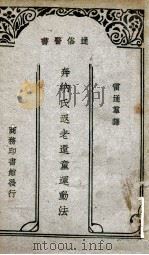 通俗醫書
雷通羣譯
奔納氏返老還童運動法
商務印書館發行